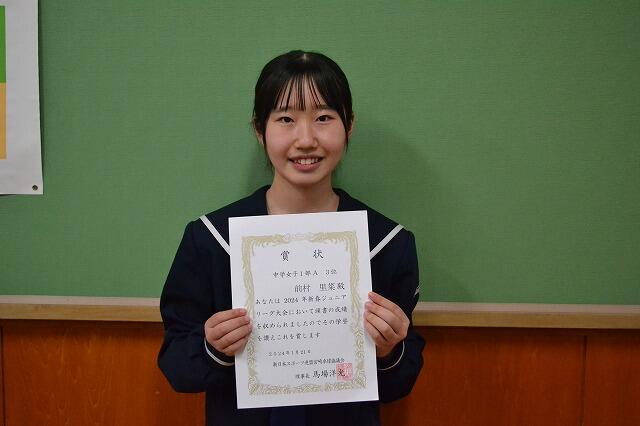 賞状
中学女子1部A 3位
前村 里菜殿
あなたは2024年新春ジュニア
リーグ大会において頭書の成績
を収められましたのでその栄誉
を讃えこれを賞します
2024年1月21日
新日本スポーツ連盟宮崎卓球協議会
理事長 馬場洋光